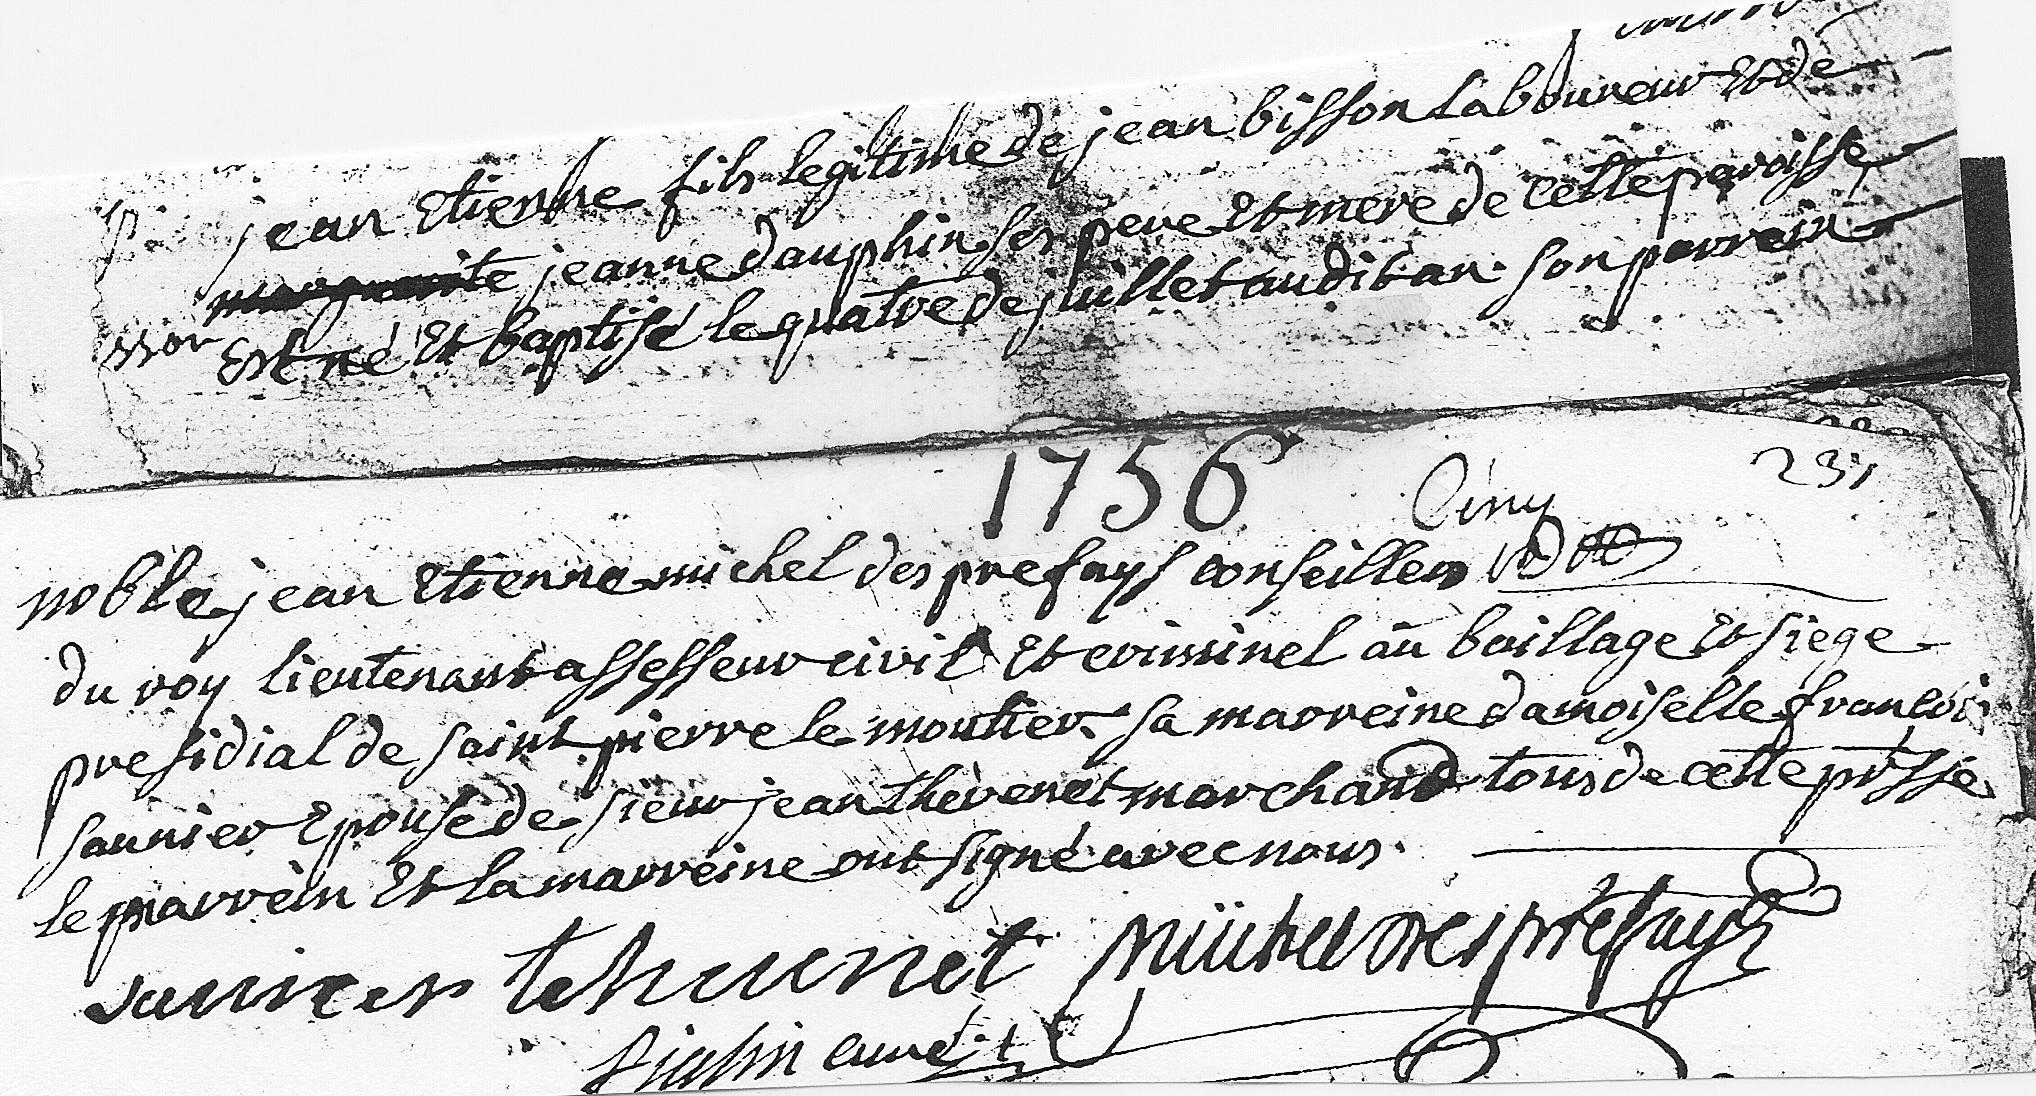 jean Etienne fils legitime de jean bisson Laboureur Et de
marguerite jeanne dauphin ses pere Et mere de cette paroisse
sson
Est né Et baptisé le quatre de juillet audit an. son parrein
1756
231
noble jean Etienne michel des prefays conseiller
du roy lieutenant assesseur civil Et criminel au baillage Et siege
presidial de saint pierre le moutier. sa marreine damoiselle francoi
saunier Epouse de sieur jean thèvenet marchand tous de cette prsse
le parrèin Et la marreine ont signé avec nous.
saunier tehevenet Michel Desprefays
curé